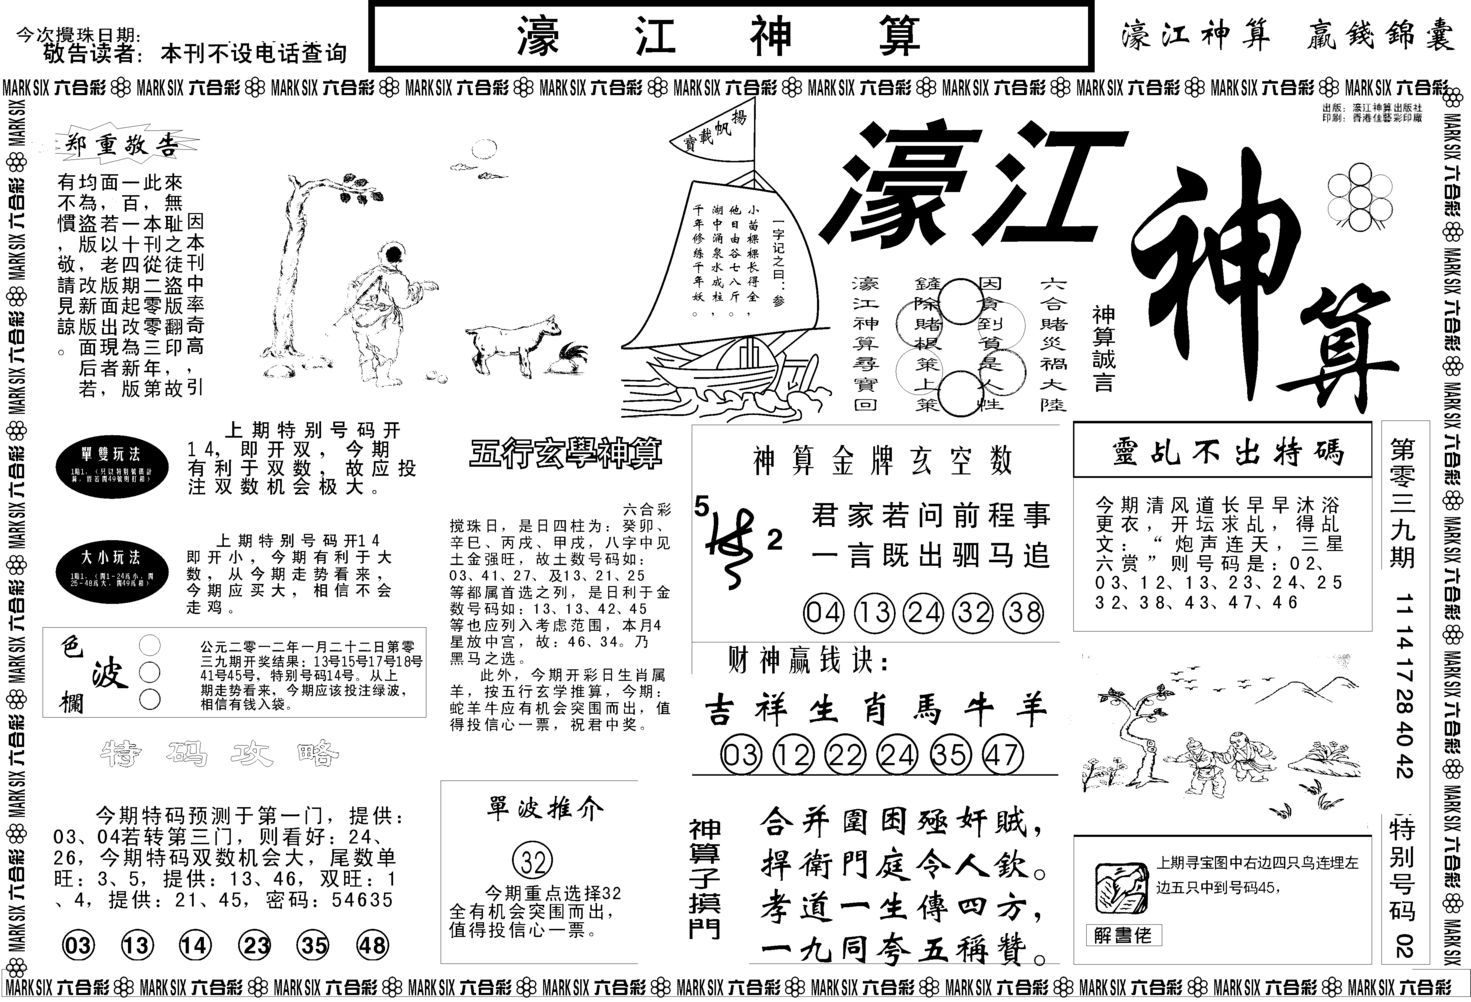 今次攪珠日期:
敬告读者: 本刊不设电话查询
濠 江 神 算
濠江神算 贏錢錦囊
MARK SIX 六合彩 MARK SIX 六合彩 MARK SIX 六合彩 MARK SIX 六合彩 MARK SIX 六合彩 MARK SIX 六合彩 MARK SIX 六合彩 MARK SIX 六合彩 MARK SIX 六合彩 MARK SIX 六合彩 MARK SIX 六合彩
出版: 濠江神算出版社
印刷: 香港佳藝彩印廠
郑重敬告
因本刊中率奇高,引
來無恥之徒盜版翻印,故
此,本刊從二零零三年第
一百一十四期起改為新版
面,若以老版面出現者,
均為盜版,改新版面后若
有不慣,敬請見諒。
揚帆載寶
一字记之曰:参
小苗棵棵长得全,
他日由谷七八斤。
湖中涌泉水成柱,
千年修练千年妖。
濠江
神算
六合賭災禍大陸
因貪到貧是人性
鏟除賭根策上策
濠江神算尋寶回
神算誠言
單雙玩法
上期特别号码开
14, 即开双, 今期
有利于双数, 故应投
注双数机会极大。
大小玩法
上期特别号码开14
即开小, 今期有利于大
数, 从今期走势看来,
今期应买大, 相信不会
走鸡。
色波欄
公元二零一二年一月二十二日第零
三九期开奖结果: 13号15号17号18号
41号45号, 特别号码14号。从上
期走势看来, 今期应该投注绿波,
相信有钱入袋。
特码攻略
今期特码预测于第一门, 提供:
03、04若转第三门, 则看好: 24、
26, 今期特码双数机会大, 尾数单
旺: 3、5, 提供: 13、46, 双旺: 1
、4, 提供: 21、45, 密码: 54635
03 13 14 23 35 48
五行玄學神算
六合彩
搅珠日, 是日四柱为: 癸卯、
辛巳、丙戌、甲戌, 八字中见
土金强旺, 故土数号码如:
03、41、27、及13、21、25
等都属首选之列, 是日利于金
数号码如: 13、13、42、45
等也应列入考虑范围, 本月4
星放中宫, 故: 46、34。乃
黑马之选。
此外, 今期开彩日生肖属
羊, 按五行玄学推算, 今期:
蛇羊牛应有机会突围而出, 值
得投信心一票, 祝君中奖。
單波推介
32
今期重点选择32
全有机会突围而出,
值得投信心一票。
神算金牌玄空数
5 2
君家若问前程事
一言既出驷马追
04 13 24 32 38
财神赢钱诀:
吉祥生肖馬牛羊
03 12 22 24 35 47
神算子摸門
合并圍困殛奸賊,
捍衛門庭令人欽。
孝道一生傳四方,
一九同夸五稱贊。
靈乩不出特碼
今期清风道长早早沐浴
更衣, 开坛求乩, 得乩
文: “炮声连天, 三星
六赏”则号码是: 02、
03、12、13、23、24、25
32、38、43、47、46
上期寻宝图中右边四只鸟连埋左
边五只中到号码45,
解書佬
第零三九期 11 14 17 28 40 42 特别号码 02
MARK SIX 六合彩 MARK SIX 六合彩 MARK SIX 六合彩 MARK SIX 六合彩 MARK SIX 六合彩 MARK SIX 六合彩 MARK SIX 六合彩 MARK SIX 六合彩 MARK SIX 六合彩 MARK SIX 六合彩 MARK SIX 六合彩